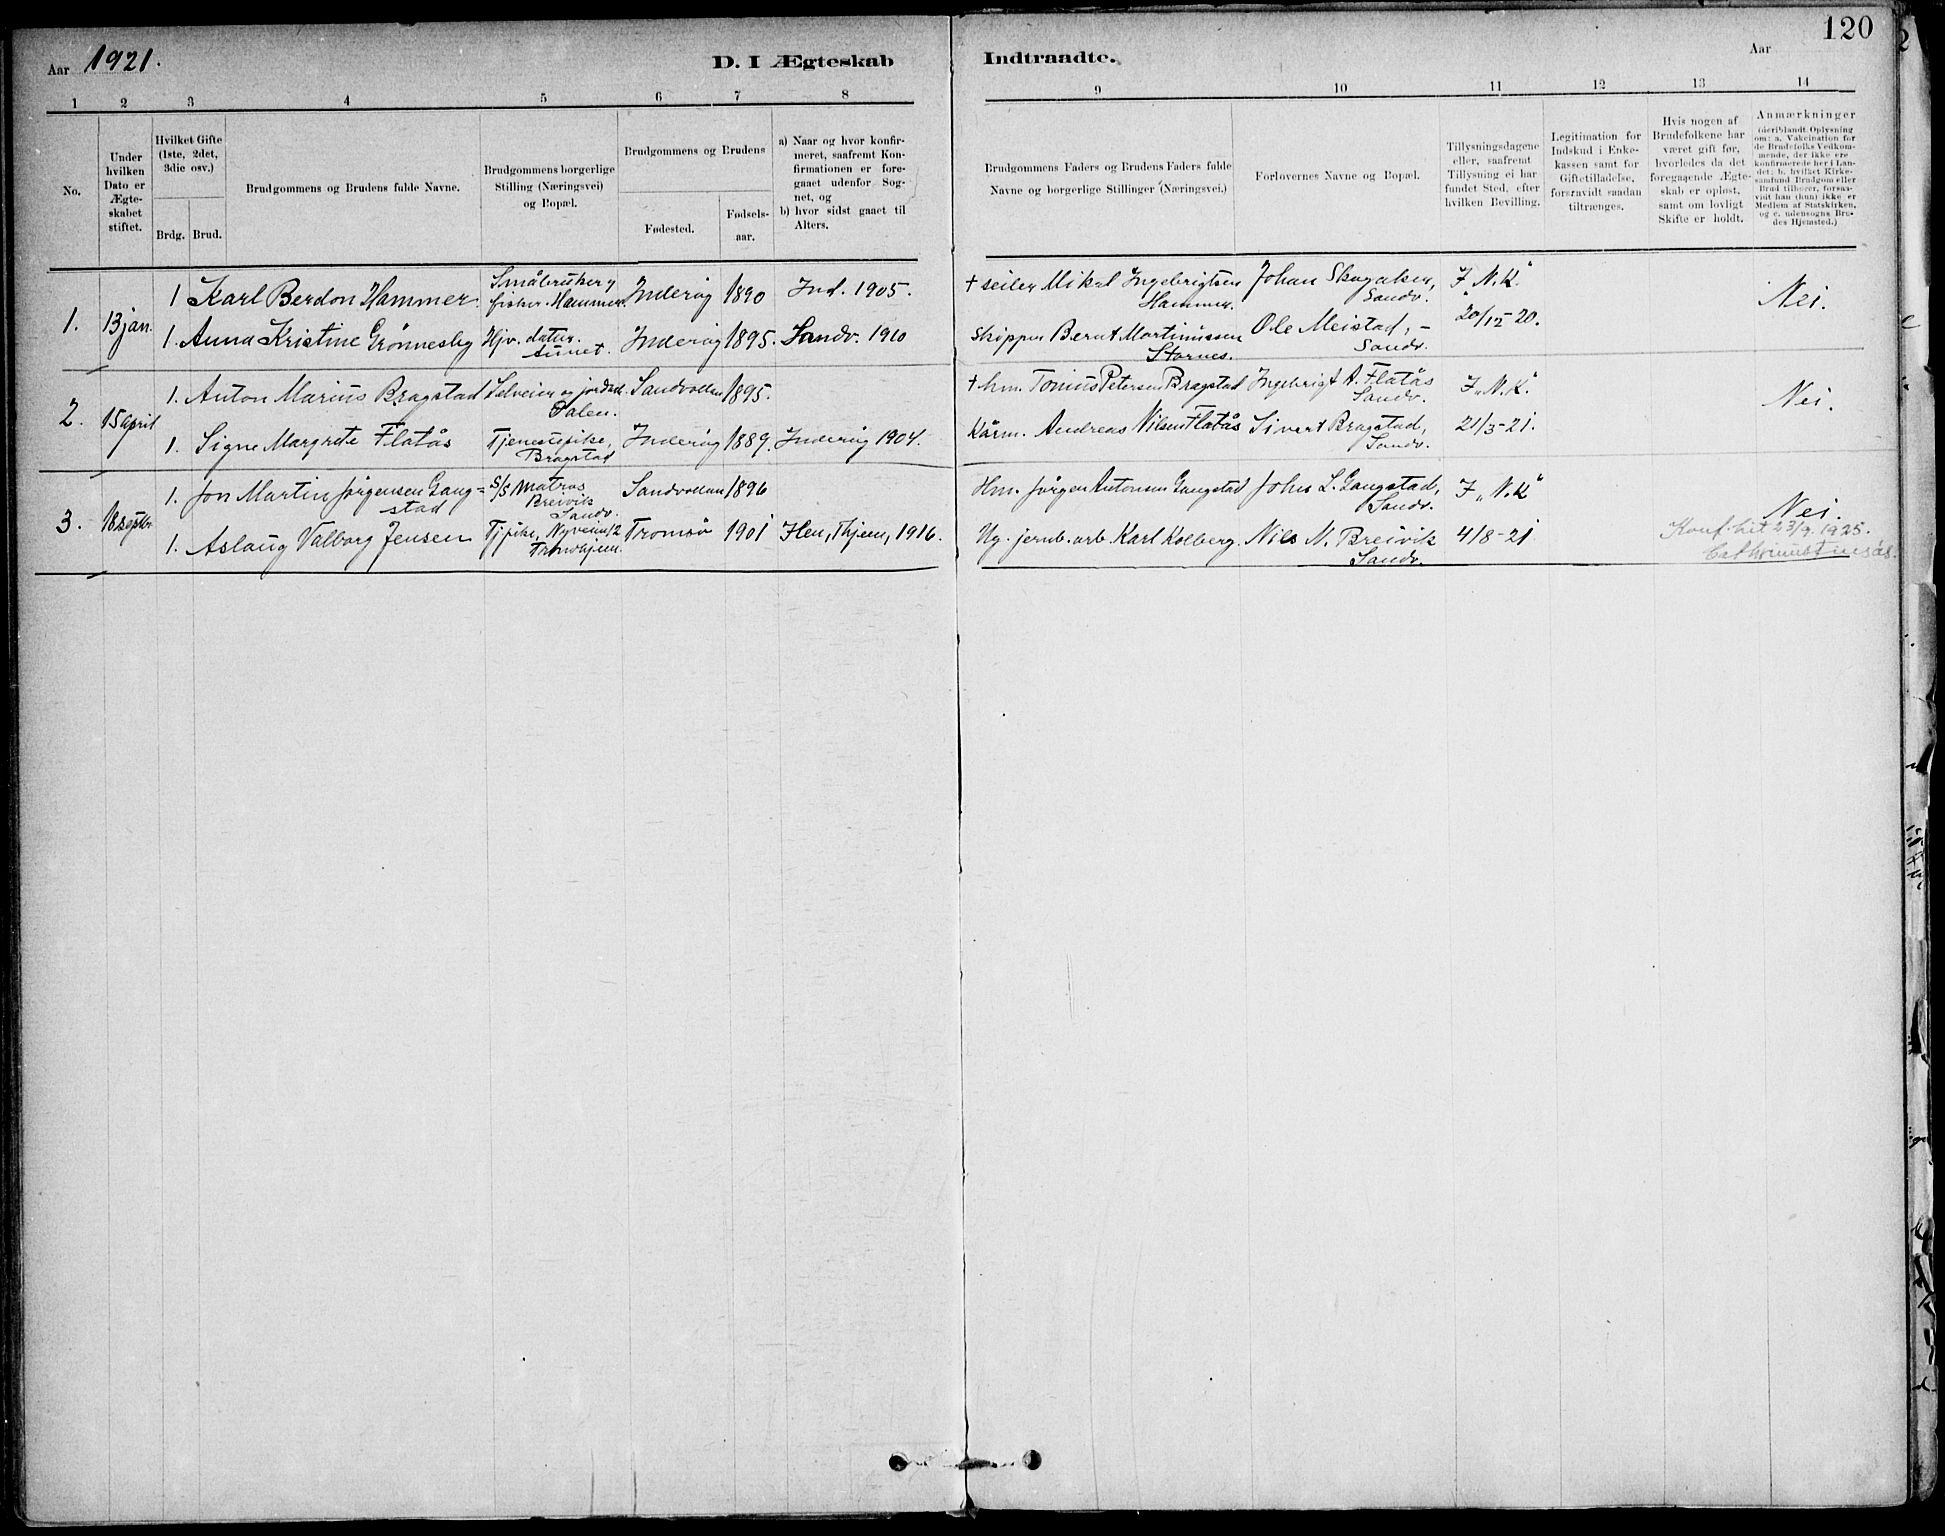 120
Aar 1921.
D. I Ægteskab Indtraadte.
Aar
1 2 3 4 5 6 7 8 9 10 11 12 13 14
No.
Under hvilken Dato er Ægte-skabet stiftet.
Hvilket Gifte (1ste, 2det, 3die osv.)
Brdg. Brud.
Brudgommens og Brudens fulde Navne.
Brudgommens borgerlige Stilling (Næringsvei) og Bopæl.
Brudgommens og Brudens
Fødested.
Fødsels-aar.
a) Naar og hvor konfir-meret, saafremt Kon-firmationen er fore-gaaet udenfor Sog-net, og
b) hvor sidst gaaet til Alters.
Brudgommens Faders og Brudens Faders fulde Navne og borgerlige Stillinger (Næringsvei.)
Forlovernes Navne og Bopæl.
Tillysningsdagene eller, saafremt Tillysning ei har fundet Sted, efter hvilken Bevilling.
Legitimation for Indskud i Enke-kassen samt for Giftetilladelse, forsaavidt saadan tiltrænges.
Hvis nogen af Brudefolkene har været gift før, hvorledes da det foregaaende Ægte-skab er opløst, samt om lovligt Skifte er holdt.
Anmærkninger (deriblandt Oplysning om: a. Vakcination for de Brudefolks Vedkom-mende, der ikke ere konfirmerede her i Lan-det; b. hvilket Kirke-samfund Brudgom eller Brud tilhører, forsaa-vidt han (hun) ikke er Medlem af Statskirken, og c. udensogns Bru-des Hjemsted.)
1. 13 jan. 1 Karl Berdon Hammer Småbruker og fisker. Hammer. Inderøy 1890 Ind. 1905. † seiler Mikal Ingebrigtsen Hammer. Johan Skogaker, Sandv. I "N.K." Nei.
1. Anna Kristine Grønnesby Hjv. datter. Aunet. Inderøy 1895. Sandv. 1910 Skipper Bernt Martinussen Stornes. Ole Meistad, - Sandv. 20/12-20.
2. 15 april 1. Anton Marius Bragstad Selveier og jordbr. Dalen. Sandvollan 1895. † hm. Tonius Petersen Bragstad Ingebrigt A. Flatås Sandv. I "N.K." Nei.
1. Signe Margrete Flatås Tjenestepike, Bragstad Inderøy 1889. Inderøy 1904. Kårm. Andreas Nilsen Flatås Sivert Bragstad, Sandv. 21/3-21.
3. 18 septbr. 1. Jon Martin Jørgensen Gang=stad S/S Matros Breivik Sandv. Sandvollan 1896 Hm. Jørgen Antonsen Gangstad Johs L. Gangstad, Sandv. I "N.K" Nei.
1. Aslaug Valborg Jensen Tj.pike, Nyveien 12 Trondhjem. Tromsø 1901 Ilen, Thjem, 1916. Ug. jernb. arb. Karl Kolberg. Nils N. Breivik Sandv. 4/8-21
Konf. hit 23/9. 1925.